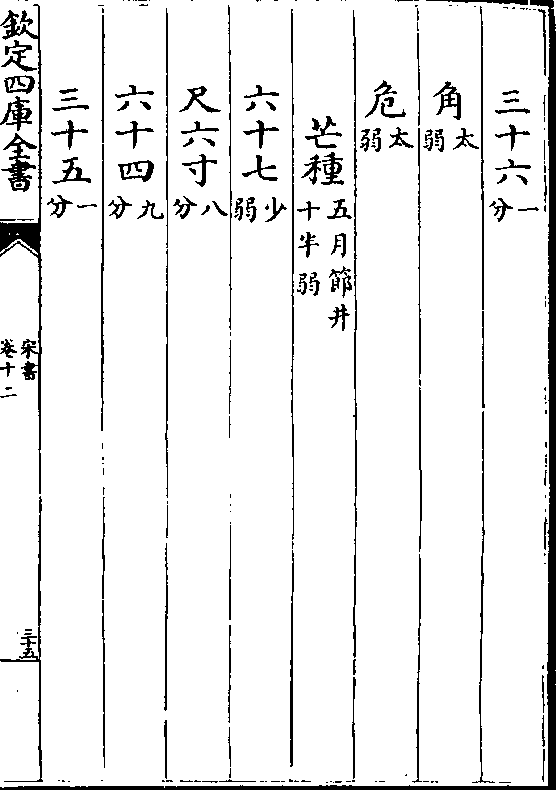 三十六一分
角太弱
危太弱
芒種五月節井十半弱
六十七少弱
尺六寸八分
六十四九分
三十五一分
欽定四庫全書
宋書
卷十二
三十五